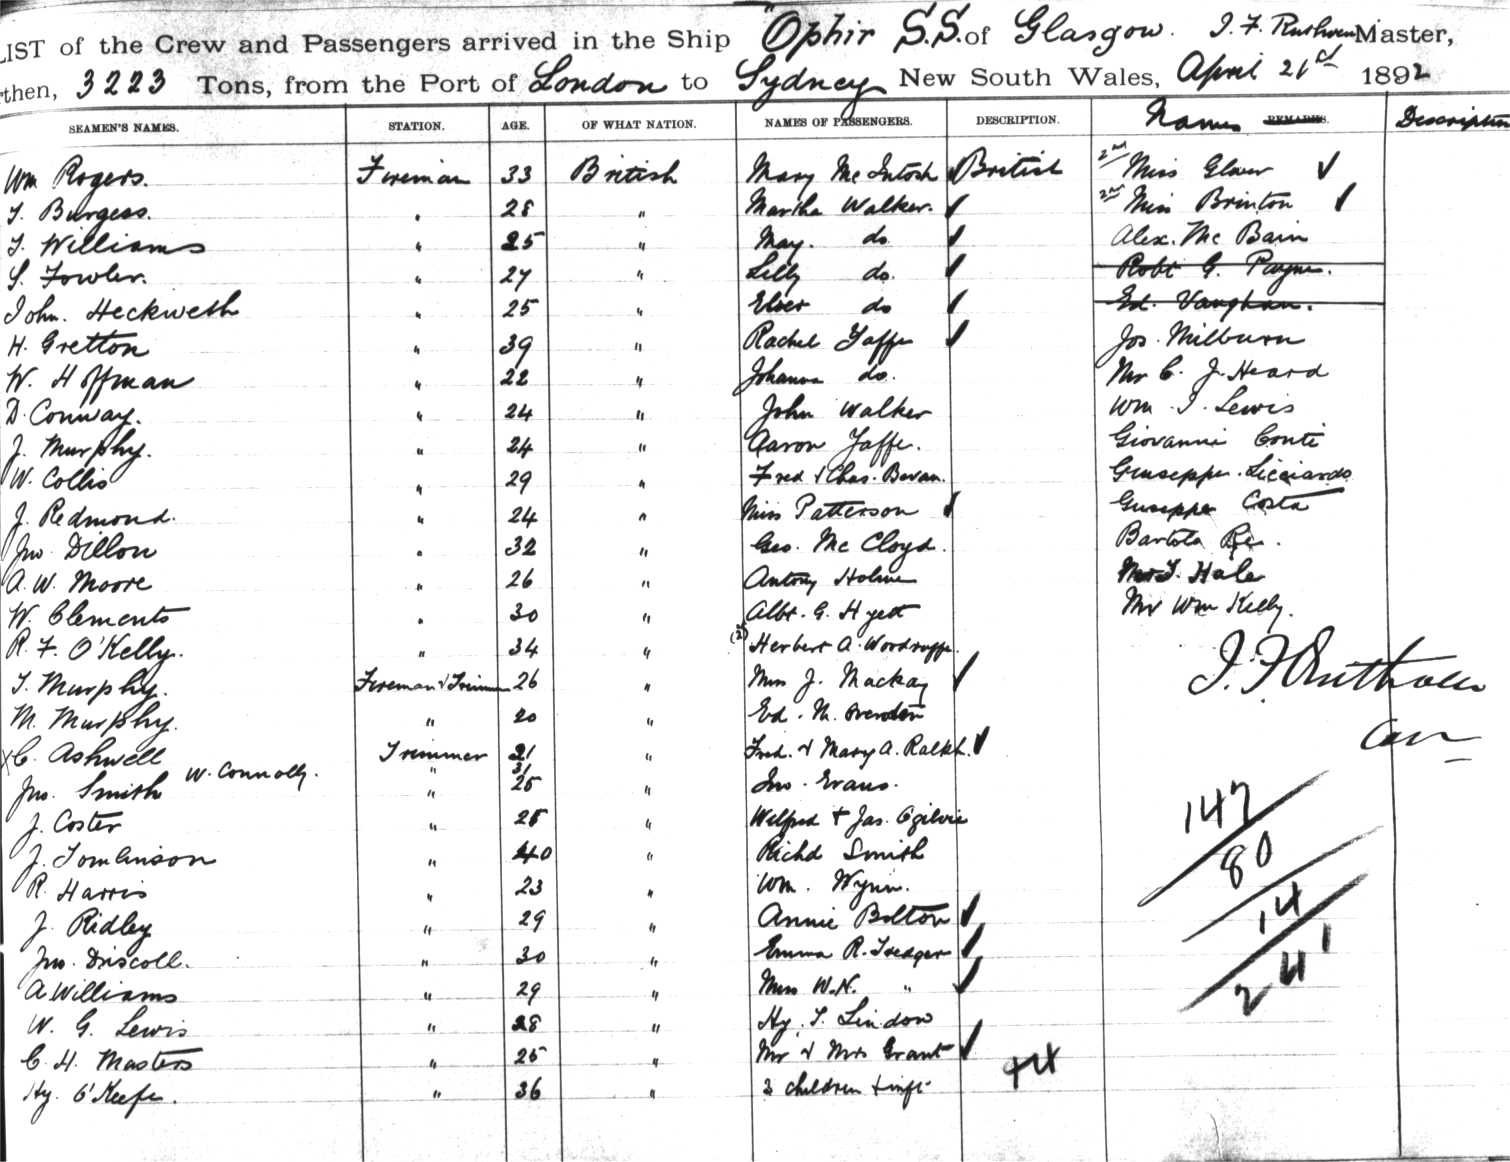 LIST of the Crew and Passengers arrived in the Ship "Ophir S.S. of Glasgow. J. F. Ruthven Master,
then, 3223 Tons, from the Port of London to Sydney New South Wales, April 21st 1892
SEAMEN'S NAMES. STATION. AGE. OF WHAT NATION. NAMES OF PASSENGERS. DESCRIPTION. Names REMARKS. Description
Wm Rogers. Fireman 33 British Mary McIntosh British 2nd Miss Glover
T. Burgess. " 28 " Martha Walker. 2nd Miss Brinton
T. Williams " 25 " May. do. Alex. Mc Bain
S. Fowler. " 27 " Lilly do. Robt G. Payne.
John. Heckweth " 25 " do Ed. Vaughan.
H. Gretton " 39 " Rachel Jaffe Jos. Milburn
W. Hoffman " 22 " Johanna do. Mr C. J. Heard
D. Conway. " 24 " John Walker Wm. J. Lewis
J. Murphy. " 24 " Aaron Jaffe. Giovanni Conti
W. Collis " 29 " Fred & Chas. Bevan. Giuseppe. Licciardo
J. Redmond. " 24 " Miss Patterson Guseppe Costa
Jno. Dillon " 32 " Geo. Mc Cloyd. Bartola Re.
A. W. Moore " 26 " Antony Holme Hale
W. Clements " 30 " Albt. G. Hyett Mr Wm Kelly.
R. F. O'Kelly. " 34 " Herbert A. Woodruffe.
T. Murphy. Fireman & Trimmer 26 " J. Mackay J. F. Ruthven
M. Murphy. " 20 " Ed. M.
X C. Ashwell Trimmer 21 " Fred. & Mary A. Ralph.
W. Connolly. " 31
Jno. Smith " 25 " Jno. Evans.
J. Coster " 25 " Wilfred & Jas. Ogilvie 147
J. Tomlinson " 40 " Richd Smith 80
R. Harris " 23 " Wm. Wynn.
J. Ridley " 29 " Annie Bolton 14
Jno. Driscoll. " 30 " Emma R. Tredger 241
A. Williams " 29 " Miss W.N. "
W. G. Lewis " 28 " Hy. T. Lindow
C. H. Masters " 25 " Mr & Mrs Grant +4
Hy. O'Keefe. " 36 " 3 children & inft.